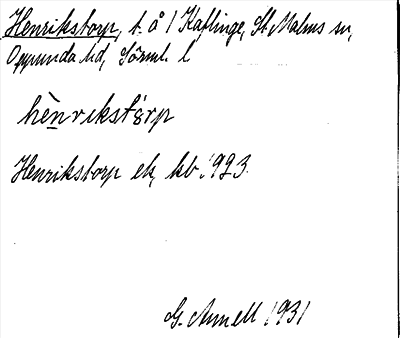 Henrikstorp, t. å / Kaflinge, St. Malms sn,
Oppunda hd, Sörml. l
hènrikstårp
Henrikstorp ek, kb 1923.
G. Annell 1931